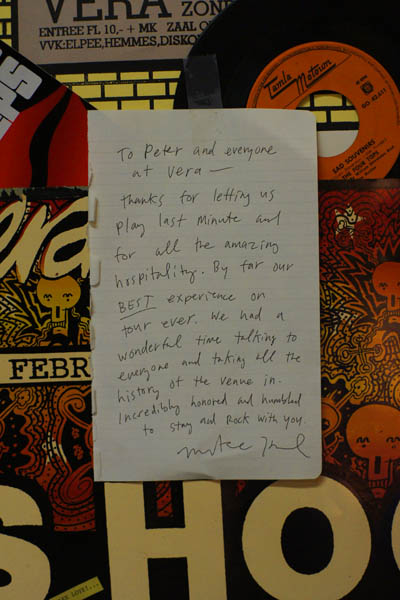 VERA
ZONE
ENTREE FL 10,- + MK ZAAL O
VVK: ELPEE, HEMMES, DISKO
Tamla Motown
SAD SOUVENIRS
THE FOUR TOPS
To Peter and everyone
at Vera —
thanks for letting us
play last minute and
for all the amazing
hospitality. By far our
BEST experience on
tour ever. We had a
wonderful time talking to
everyone and taking all the
history of the venue in.
Incredibly honored and humbled
to stay and Rock with you.
FEBR
S HO